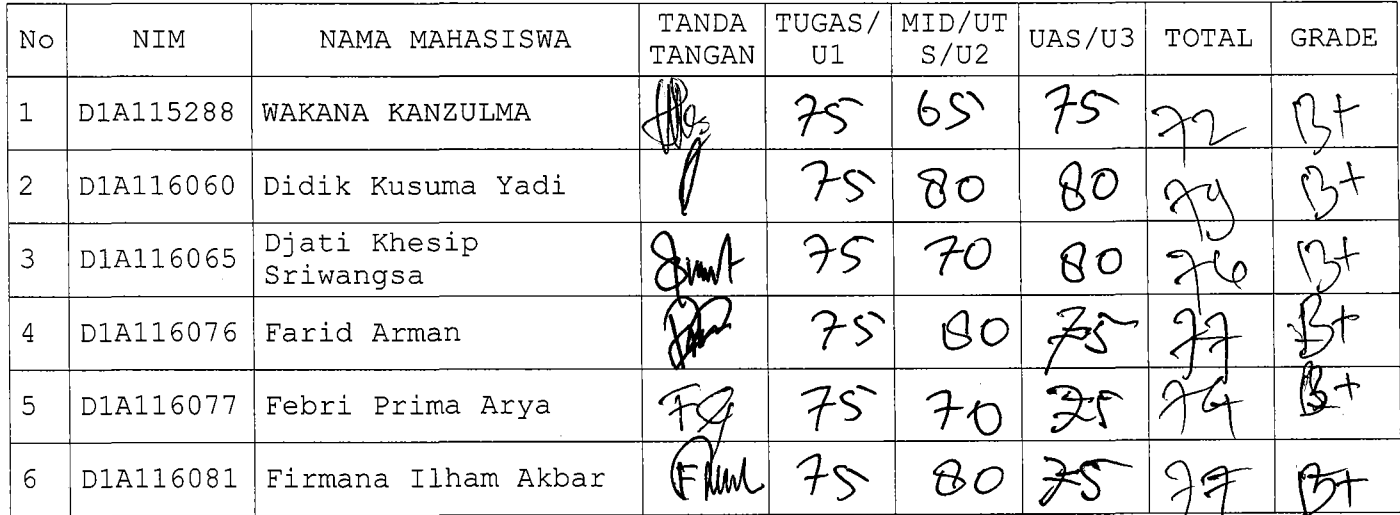 No NIM NAMA MAHASISWA TANDA TANGAN TUGAS/U1 MID/UTS/U2 UAS/U3 TOTAL GRADE
1 D1A115288 WAKANA KANZULMA 75 65 75 72 B+
2 D1A116060 Didik Kusuma Yadi 75 80 80 79 B+
3 D1A116065 Djati Khesip Sriwangsa 75 70 80 76 B+
4 D1A116076 Farid Arman 75 80 75 77 B+
5 D1A116077 Febri Prima Arya 75 70 75 74 B+
6 D1A116081 Firmana Ilham Akbar 75 80 75 77 B+